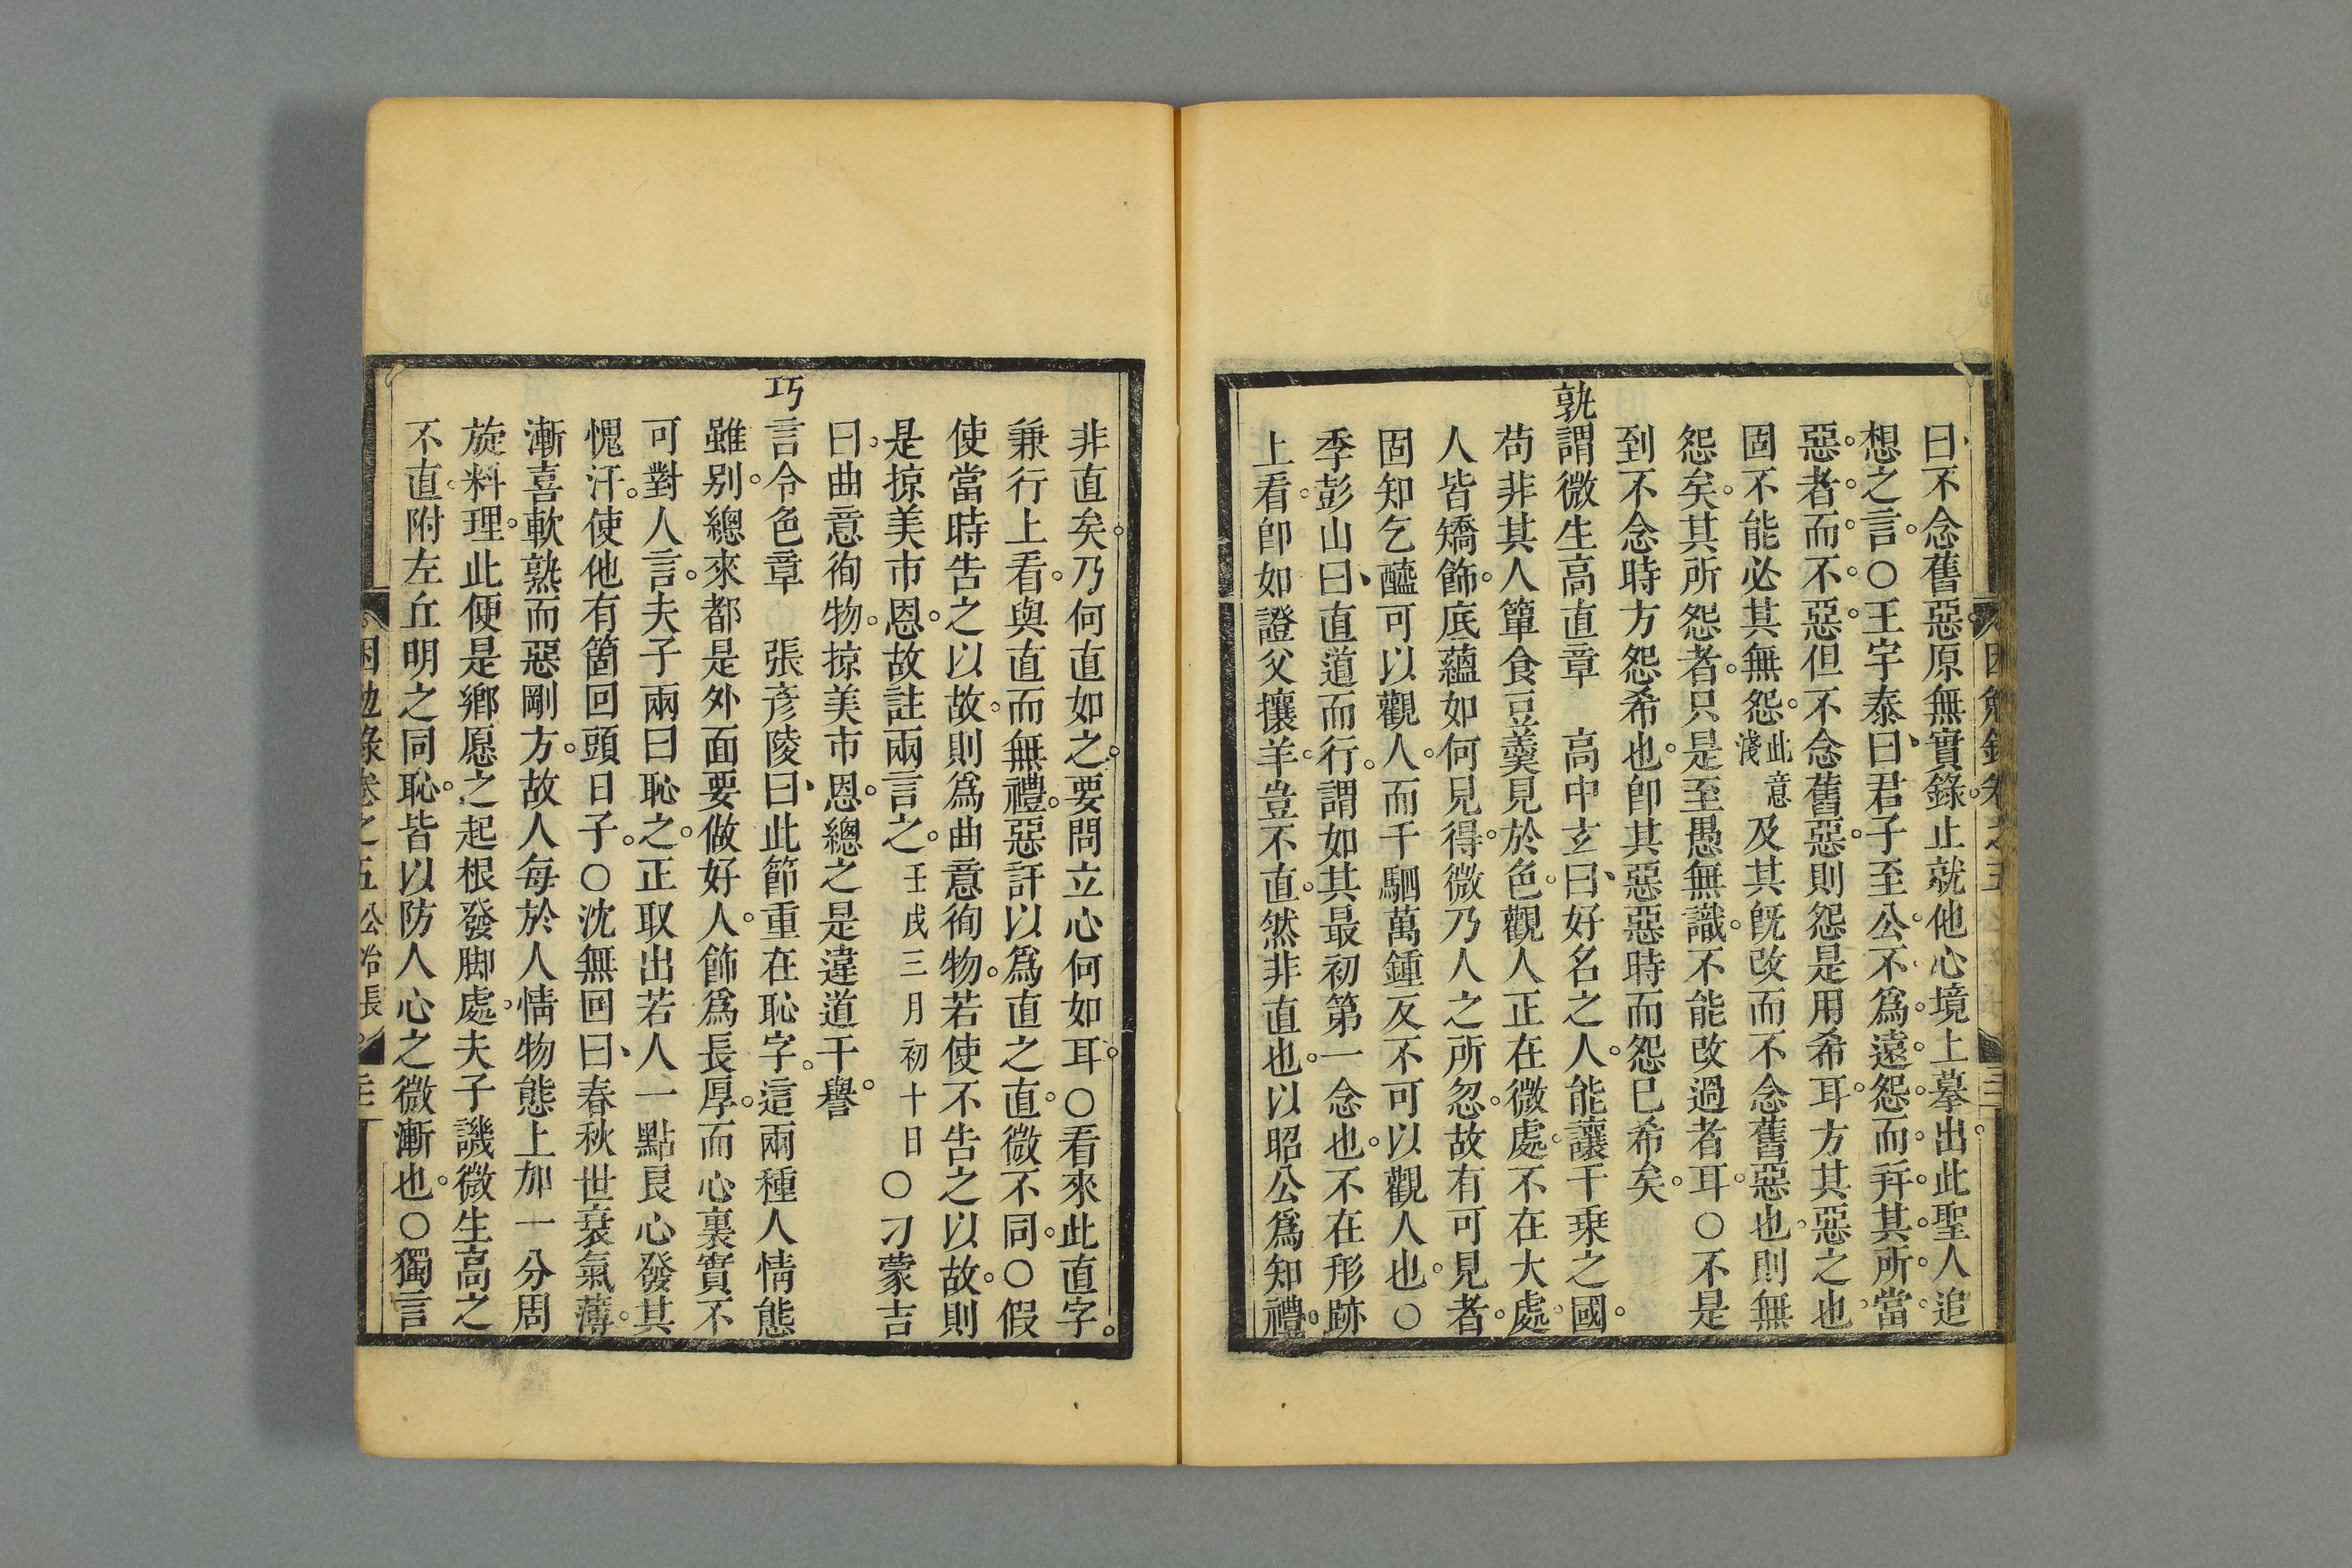 曰不念舊惡原無實錄止就他心境上摹出此聖人追
想之言○王宇泰曰君子至公不爲遠怨而弃其所當
惡者而不惡但不念舊惡則怨是用希耳方其惡之也
固不能必其無怨此意淺及其旣改而不念舊惡也則無
怨矣其所怨者只是至愚無識不能改過者耳○不是
到不念時方怨希也卽其惡惡時而怨已希矣
孰謂微生高直章　高中玄曰好名之人能讓千乗之國
苟非其人簞食豆羹見於色觀人正在微處不在大處
人皆矯飾底蘊如何見得微乃人之所忽故有可見者
固知乞醯可以觀人而千駟萬鍾反不可以觀人也○
季彭山曰直道而行謂如其最初第一念也不在形跡
上看卽如證父攘羊豈不直然非直也以昭公爲知禮
非直矣乃何直如之要問立心何如耳○看來此直字
兼行上看與直而無禮惡訐以爲直之直微不同○假
使當時告之以故則爲曲意徇物若使不告之以故則
是掠美市恩故註兩言之壬戌三月初十日○刁蒙吉
曰曲意徇物掠美市恩總之是違道干譽
巧言令色章　張彦陵曰此節重在恥字這兩種人情態
雖别總來都是外面要做好人飾爲長厚而心裏實不
可對人言夫子兩曰恥之正取出若人一點良心發其
愧汗使他有箇回頭日子○沈無回曰春秋世衰氣薄
漸喜軟熟而惡剛方故人每於人情物態上加一分周
旋料理此便是鄉愿之起根發脚處夫子譏微生高之
不直附左丘明之同恥皆以防人心之微漸也○獨言
困勉錄卷之五 公冶長